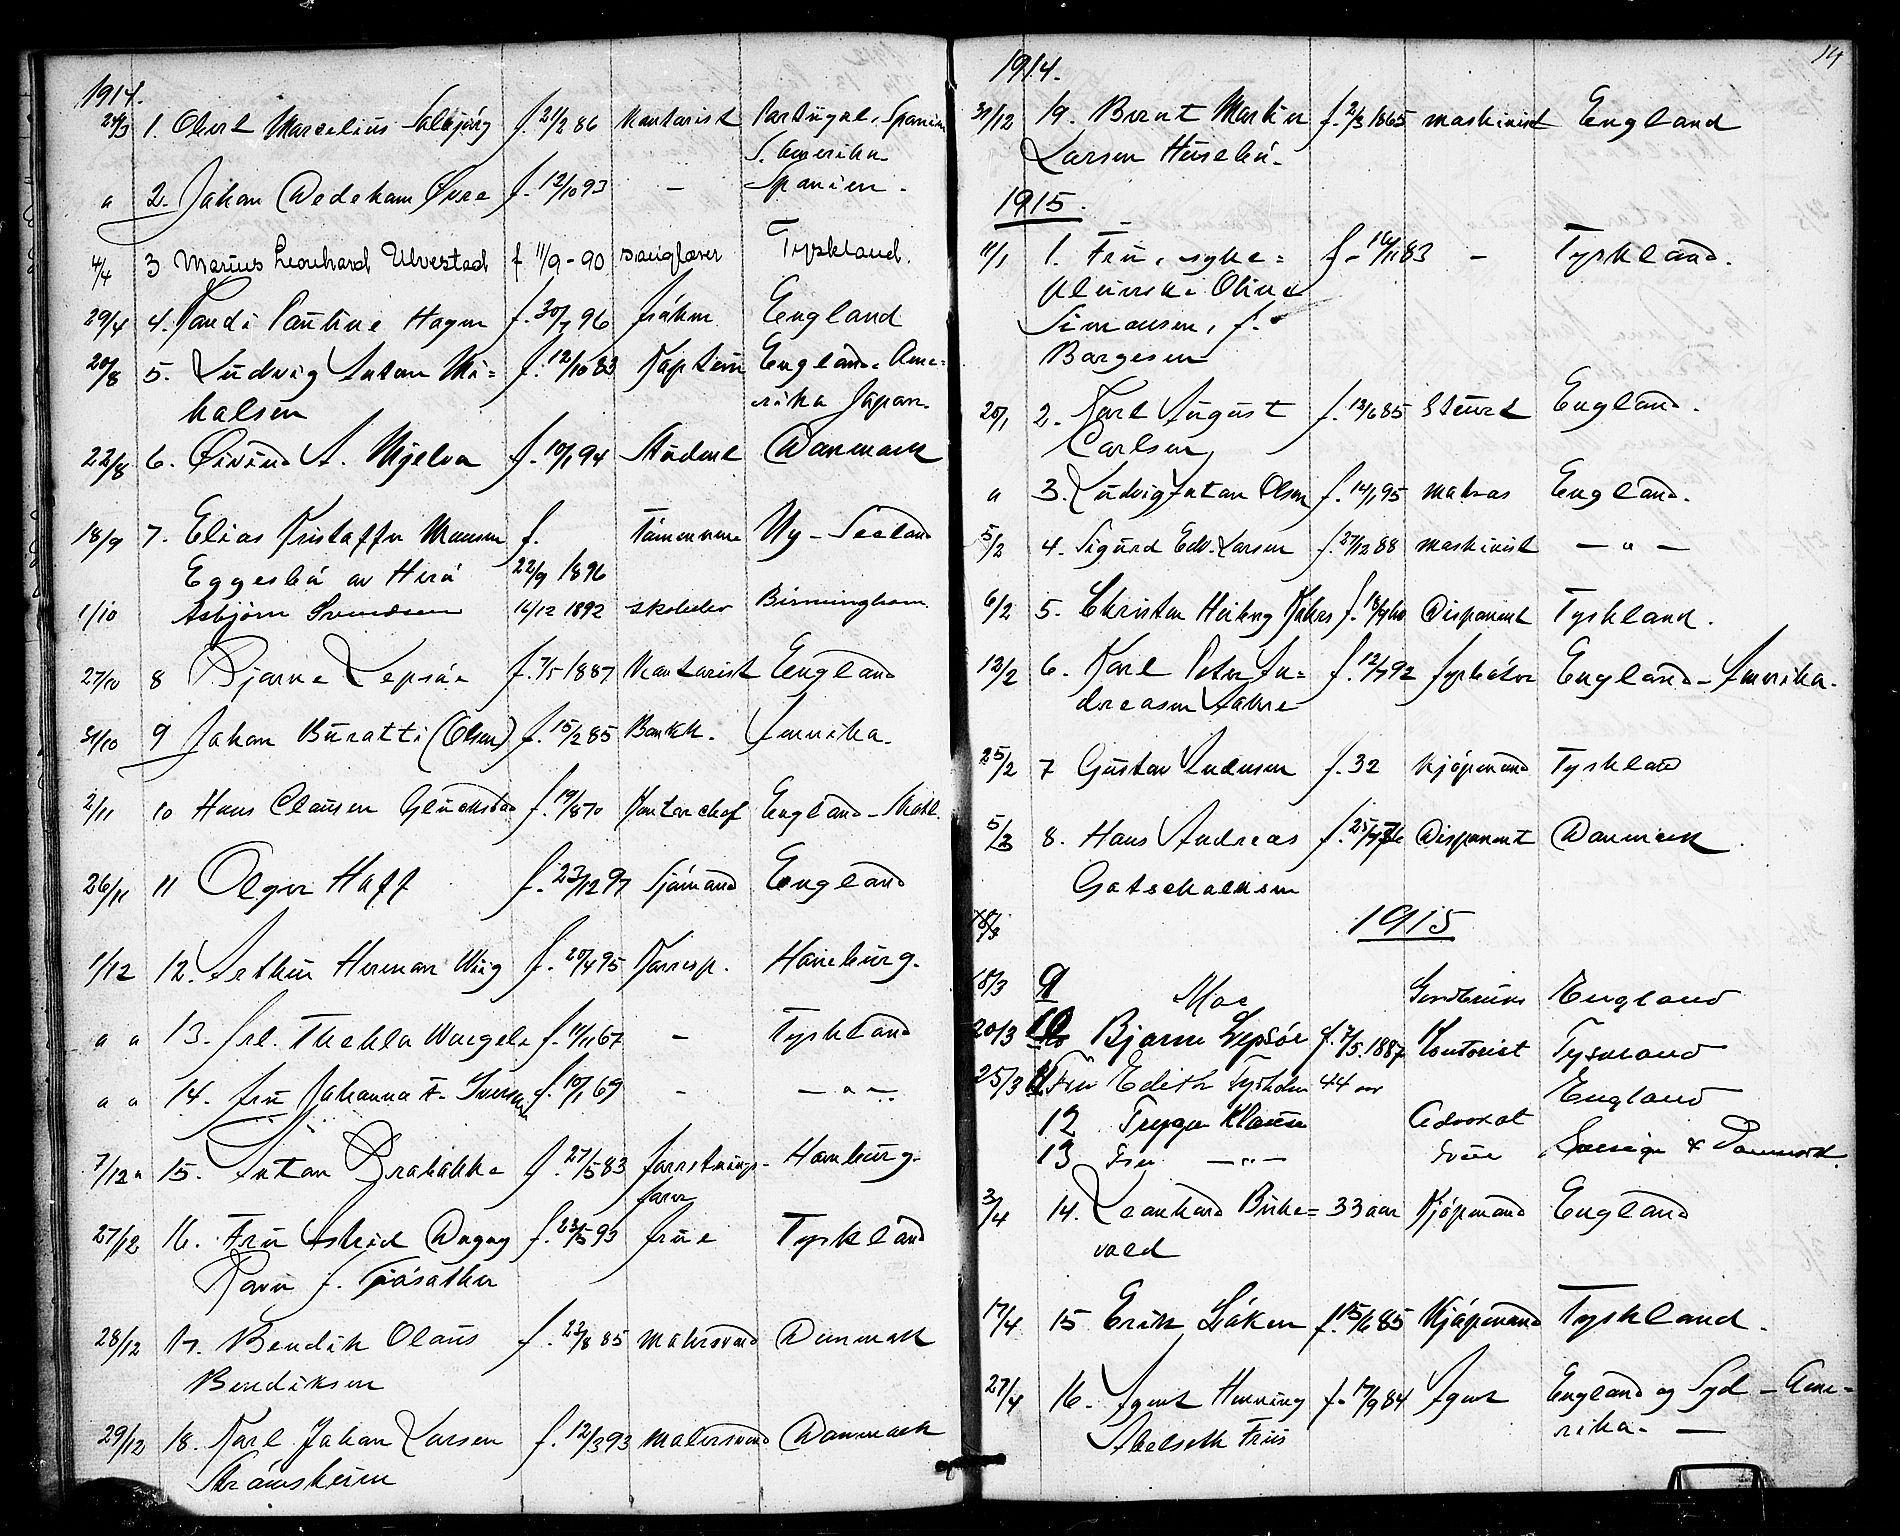 1914.
24/3 1. Olert Marcelius f. 21/2 86 Kontorist Portugal, Spanien
S. Amerika
" 2. Johan Dedekam Øvre f. 12/10 93 — Spanien.
4/4 3 Marius Leonhard Ulvestad f 11/9 - 90 Tyskland.
29/4 4. Hagen f. 30/7 96 frøken England
20/8 5. Ludvig Anton Mi= f. 12/10 83 Kaptein England. Ame=
kalsen rika Japan.
22/8 6. Øivind A. Mjelva f. 10/1 94 Student Danmark
18/9 7. Elias Kristoffer Monsen f. Tømmerm Ny-Seeland
Eggesbø av Herø 22/9 1896
1/10 Asbjørn Svendsen 14/12 1892 skoelev Birmingham.
27/10 8 Bjarne Lepsøe f. 7/5 1887 Kontorist England
31/10 9 Johan Buratti (Olsen) f. 15/2 85 Bankk. Amerika.
2/11 10 Hans Clausen Gluckstad f. 19/8 70 Kontorchef England
26/11 11 Olger Hoff f. 23/12 97 Sjømand England
1/12 12. Arthur Herman Wiig f. 20/4 95 Korresp. Hamburg.
" " 13. frl. Thekla f. 11/11 67 - Tyskland
" " 14. fru Johanna A. Iversen f. 10/1 69 - — " —
7/12 " 15. Anton Brobakke f. 27/5 83 Forretnings- Hamburg.
fører
27/12 16. Fru Astrid Dagny f. 23/5 93 frue Tyskland
Ravn f.
28/12 17. Bendik Olaus f. 22/8 85 malersvend Danmark
Bendiksen
29/12 18. Karl Johan Larsen f. 12/3 93 malersvend Danmark
Strømsheim
14
1914.
31/12 19. Bernt Martin f. 2/3 1865 maskinist England
Larsen Husebø.
1915.
11/1 1. Fru, syke= f. 16/11 83 - Tyskland.
pleierske Olina
Simonsen, f.
Borgesen
20/1 2. Karl August f. 13/6 85 Stuert England.
Carlsen
" 3. Ludvig Anton Olsen f. 14/1 95 matros England.
5/2 4. Sigurd Edv. Larsen f. 27/12 88 maskinist — " —
6/2 5. Christen f. 18/9 60 Disponent Tyskland.
12/2 6. Karl Peter An= f. 12/7 92 fyrbøter England - Amerika.
dreasen Aakre
25/2 7 Gustav Andersen f. 32 Kjøpmand Tyskland
5/3 8. Hans Andreas Disponent Danmark
Gotschalksen
18/3 1915
18/3 9 Moe England
20/3 10 Bjarne Lepsøe f. 7/5. 1887 Kontorist Tyskland
25/3 11 Fru Edith 44 aar England
12 Trygve Klausen Advokat
13 Fru — " — Frue Sverige & Danmark.
3/4 14. Leonhard Birke= 33 aar Kjøpmand England
vold
17/4 15 Erik Løken f. 15/6 85 Kjøpmand Tyskland.
27/4 16. Agent Henning f. 17/9 84 Agent England og Syd-Ame=
Abelseth Friis rika. —